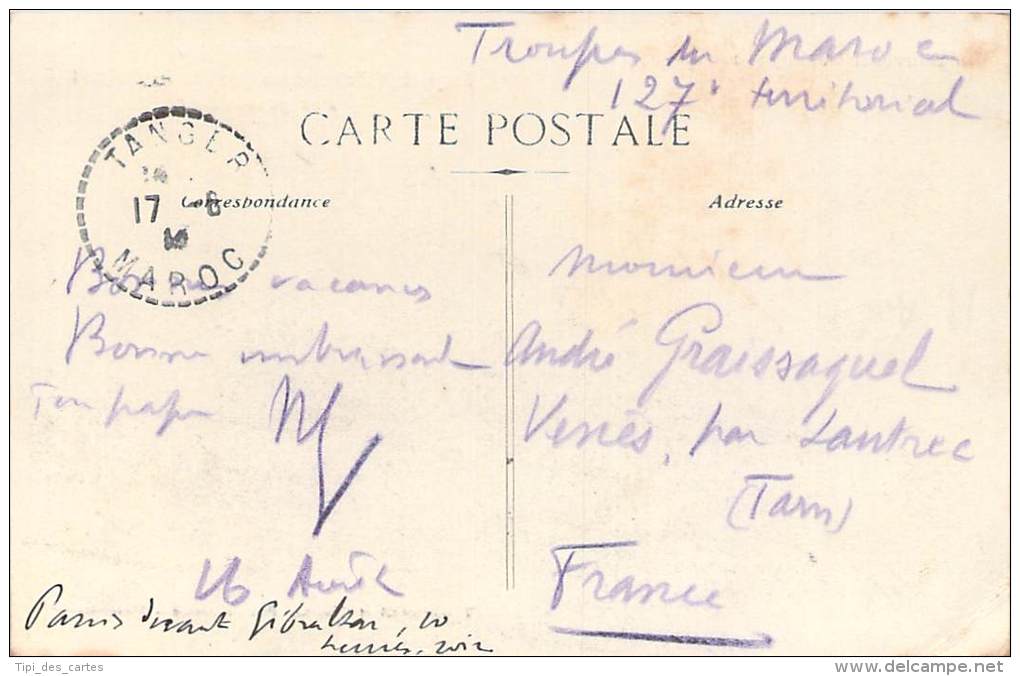 Troupes du Maroc
127e territorial
CARTE POSTALE
TANGER
17 -8
MAROC
Correspondance
Adresse
Bonnes vacances
Bonne
Ton papa
16 Août
Monsieur
André Graissaguel
Venès, par Lautrec
(Tarn)
France
devant Gibraltar, 10
heures, soir
Tipi_des_cartes
delcampe.net